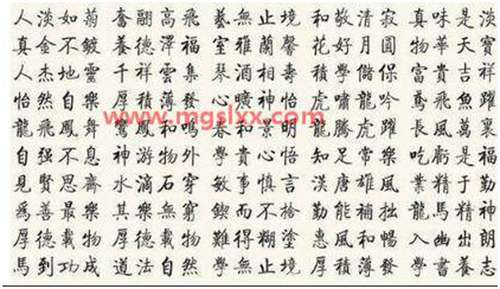 人淡如菊 奮翮高飛 藝無止境 和敬清寂 真味是淡
真金不鍍 養德澤福 室雅蘭馨 花好月圓 物華天寶
人杰地靈 千祥雲集 琴 酒相壽 學儲保 富貴吉祥
怡然自樂 厚積薄發 心曠神怡 虎嘯龍吟 鳶飛魚躍
龍飛鳳舞 鸞鳳和鳴 春和景明 龍騰虎躍 長風萬裏
自强不息 神游物外 學貴心悟 知足常樂 吃虧是福
見賢思齊 水滴石穿 敏事慎言 漢唐雄風 業精于勤
爲善最樂 其樂無窮 鍥而不捨 勤能補拙 馬精神
厚德載物 厚德載物 難得糊塗 惠風和暢 入幽出朗
馬到功成 道法自然 學無止境 厚積薄發 學書養志
www.mgslxx.com